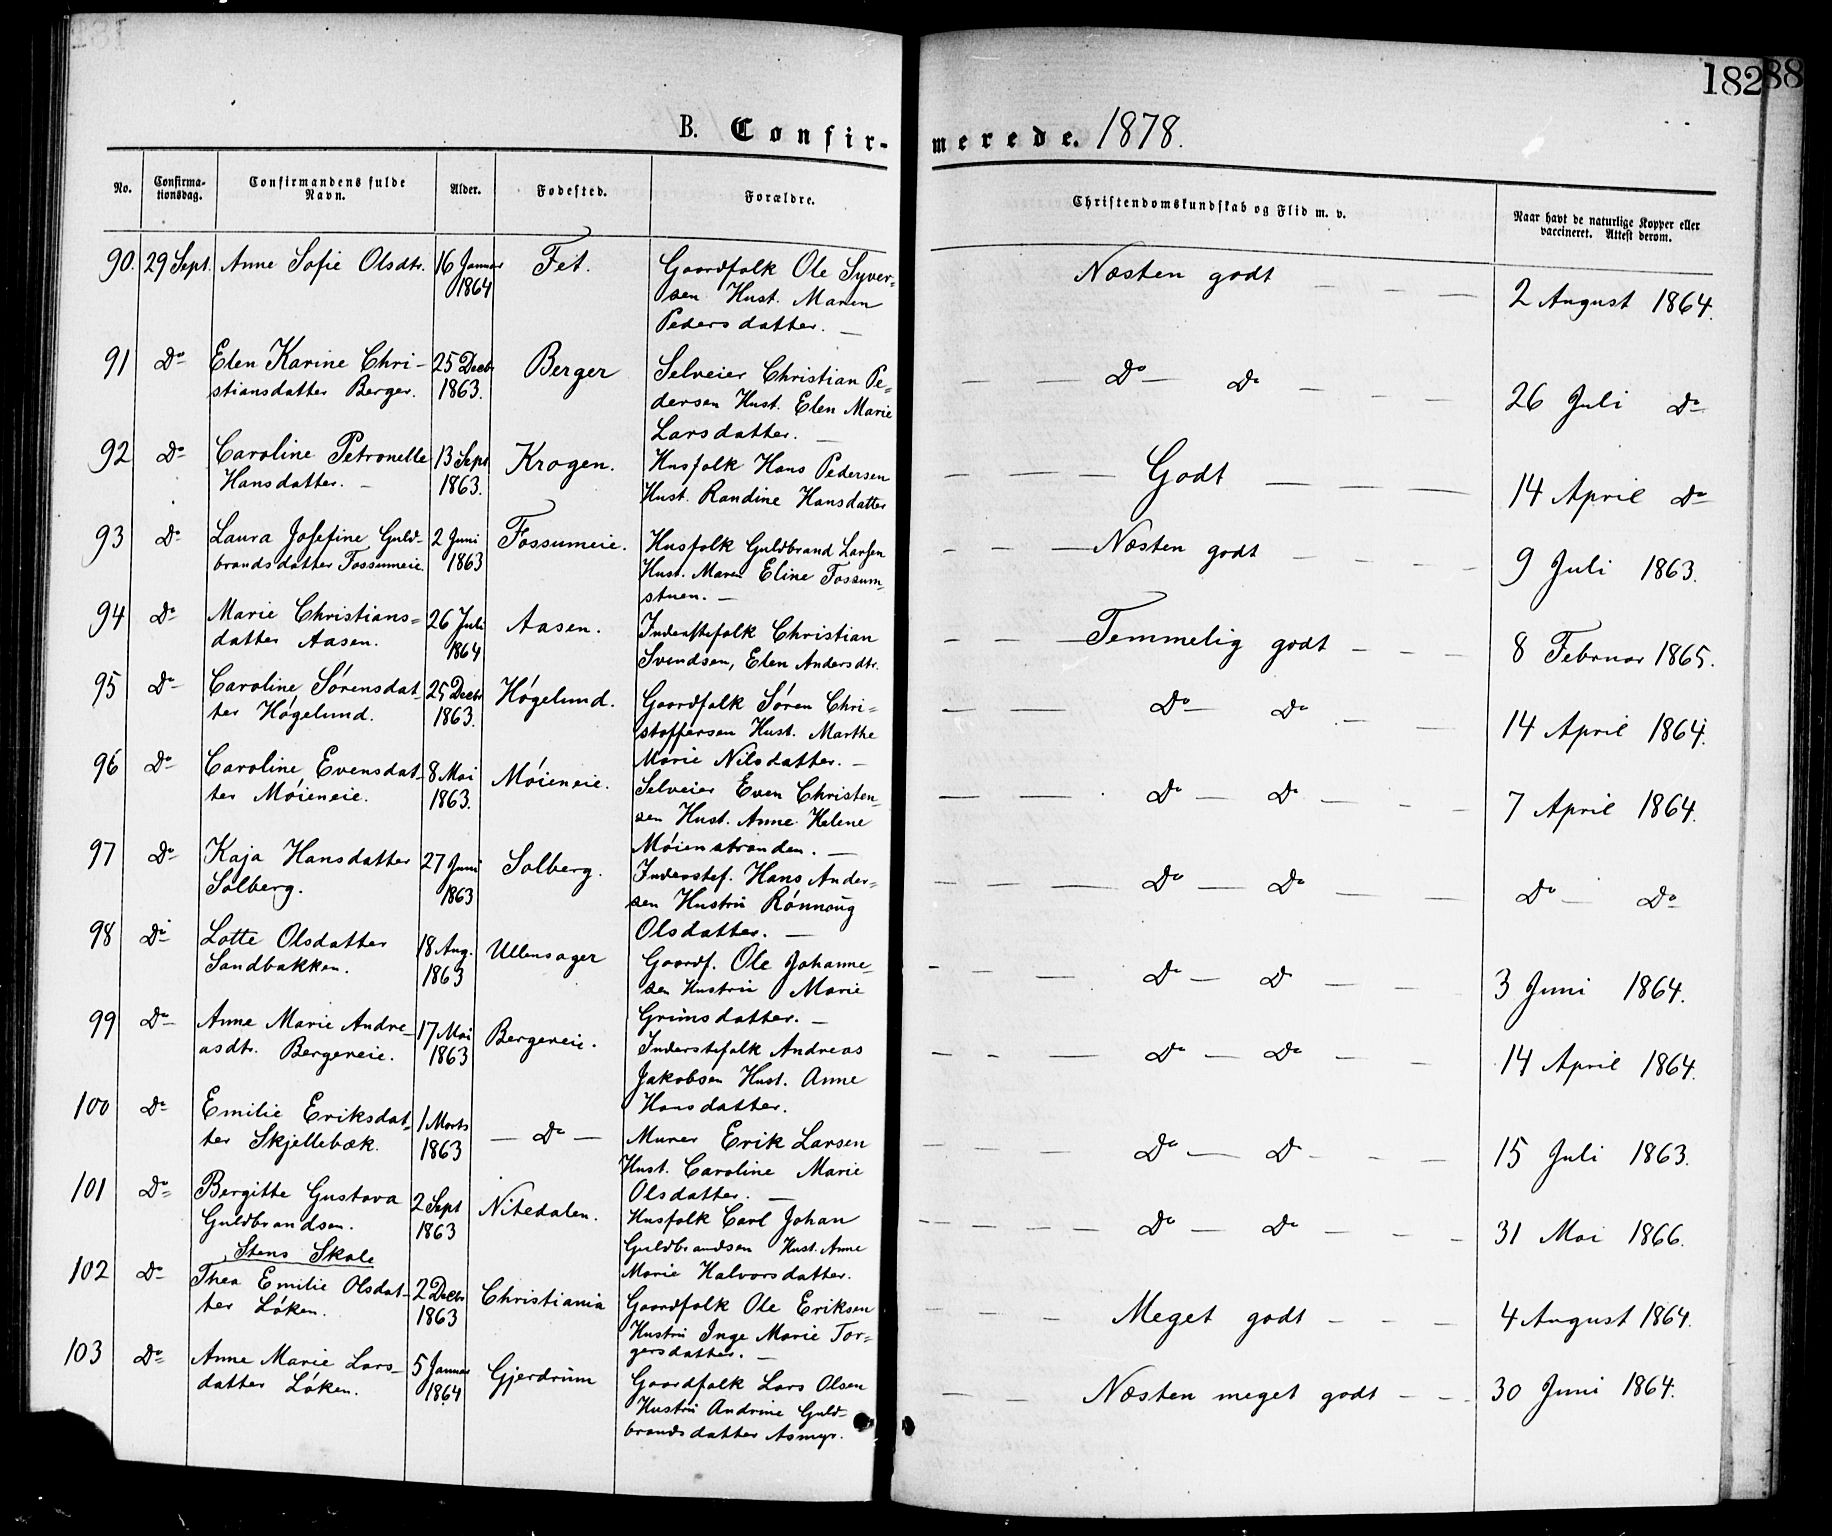 182 88
B. Confir-merede. 1878.
No. Confirma-tionsdag. Confirmandens fulde Navn. Alder. Fødested. Forældre. Christendomskundskab og Flid m. v. Naar havt de naturlige Kopper eller vaccineret. Attest derom.
90. 29 Sept. Anne Sofie Olsdtr. 16 Januar Fet. Gaardfolk Ole Syver- Næsten godt — — — 2 August 1864.
1864 sen Hust. Maren
Pedersdatter. —
91 Do Elen Karine Chri- 25 Decbr Berger Selveier Christian Pe- — — Do — Do — — — 26 Juli Do
stiansdatter Berger. 1863. dersen Hust. Elen Marie
Larsdatter. —
92 Do Caroline Petronelle 13 Sept Krogen. Husfolk Hans Pedersen — — — Godt — — — — 14 April Do
Hansdatter. — 1863. Hust. Randine Hansdatter
93 Do Laura Josefine Guld- 2 Juni Fossumeie. Husfolk Guldbrand Larsen — — — Næsten godt — — — — 9 Juli 1863.
brandsdatter Fossumeie 1863 Hust. Maren Eline Fossum-
stuen. —
94 Do Marie Christians= 26 Juli Aasen. Inderstefolk Christian — — — Temmelig godt — — — 8 Februar 1865.
datter Aasen. 1864 Svendsen, Elen Andersdtr.
95 Do Caroline Sørensdat- 25 Decbr Høgelund. Gaardfolk Søren Chri= — — Do — Do — — 14 April 1864.
ter Høgelund. 1863. stoffersen Hust. Marthe
Marie Nilsdatter. —
96 Do Caroline Evensdat- 8 Mai Møieneie. Selveier Even Christen- — — Do — Do — — — 7 April 1864.
ter Møieneie. 1863. sen Hust. Anne Helene
Møienstranden. —
97 Do Kaja Hansdatter 27 Juni Solberg. Inderstef. Hans Ander= — — — Do — Do — — Do — Do
Solberg. 1863 sen Hustru Rønnaug
Olsdatter. —
98 Do Lotte Olsdatter 18 Aug. Ullensager Gaardf. Ole Johanne- — — — Do — Do — — — 3 Juni 1864.
Sandbakken. 1863 sen Hustru Marie
Grimsdatter. —
99 Do Anne Marie Andre- 17 Mai Bergereie. Inderstefolk Andreas — — — Do — Do — — 14 April 1864.
asdtr. Bergereie. 1863 Jakobsen Hust. Anne
Hansdatter.
100 Do Emilie Eriksdat- 1 Marts — Do — Murer Erik Larsen — — — Do — Do — — — 15 Juli 1863.
ter Skjellebæk. 1863 Hust. Caroline Marie
Olsdatter. —
101 Do Bergitte Gustava 2 Sept Nitedalen. Husfolk Carl Johan — — — — Do — Do — — — 31 Mai 1866.
Guldbrandsen. 1863 Guldbrandsen Hust. Anne
Stens Skole Marie Halvorsdatter.
102 Do Thea Emilie Olsdat- 2 Decbr Christiania Gaardfolk Ole Eriksen — — — Meget godt — — — 4 August 1864.
ter Løken. 1863 Hustru Inge Marie Tor=
gersdatter. —
103 Do Anne Marie Lars- 5 Januar Gjerdrum Gaardfolk Lars Olsen — — Næsten meget godt — — — 30 Juni 1864.
datter Løken. 1864 Hustru Andrine Guld-
brandsdatter Asmyr.